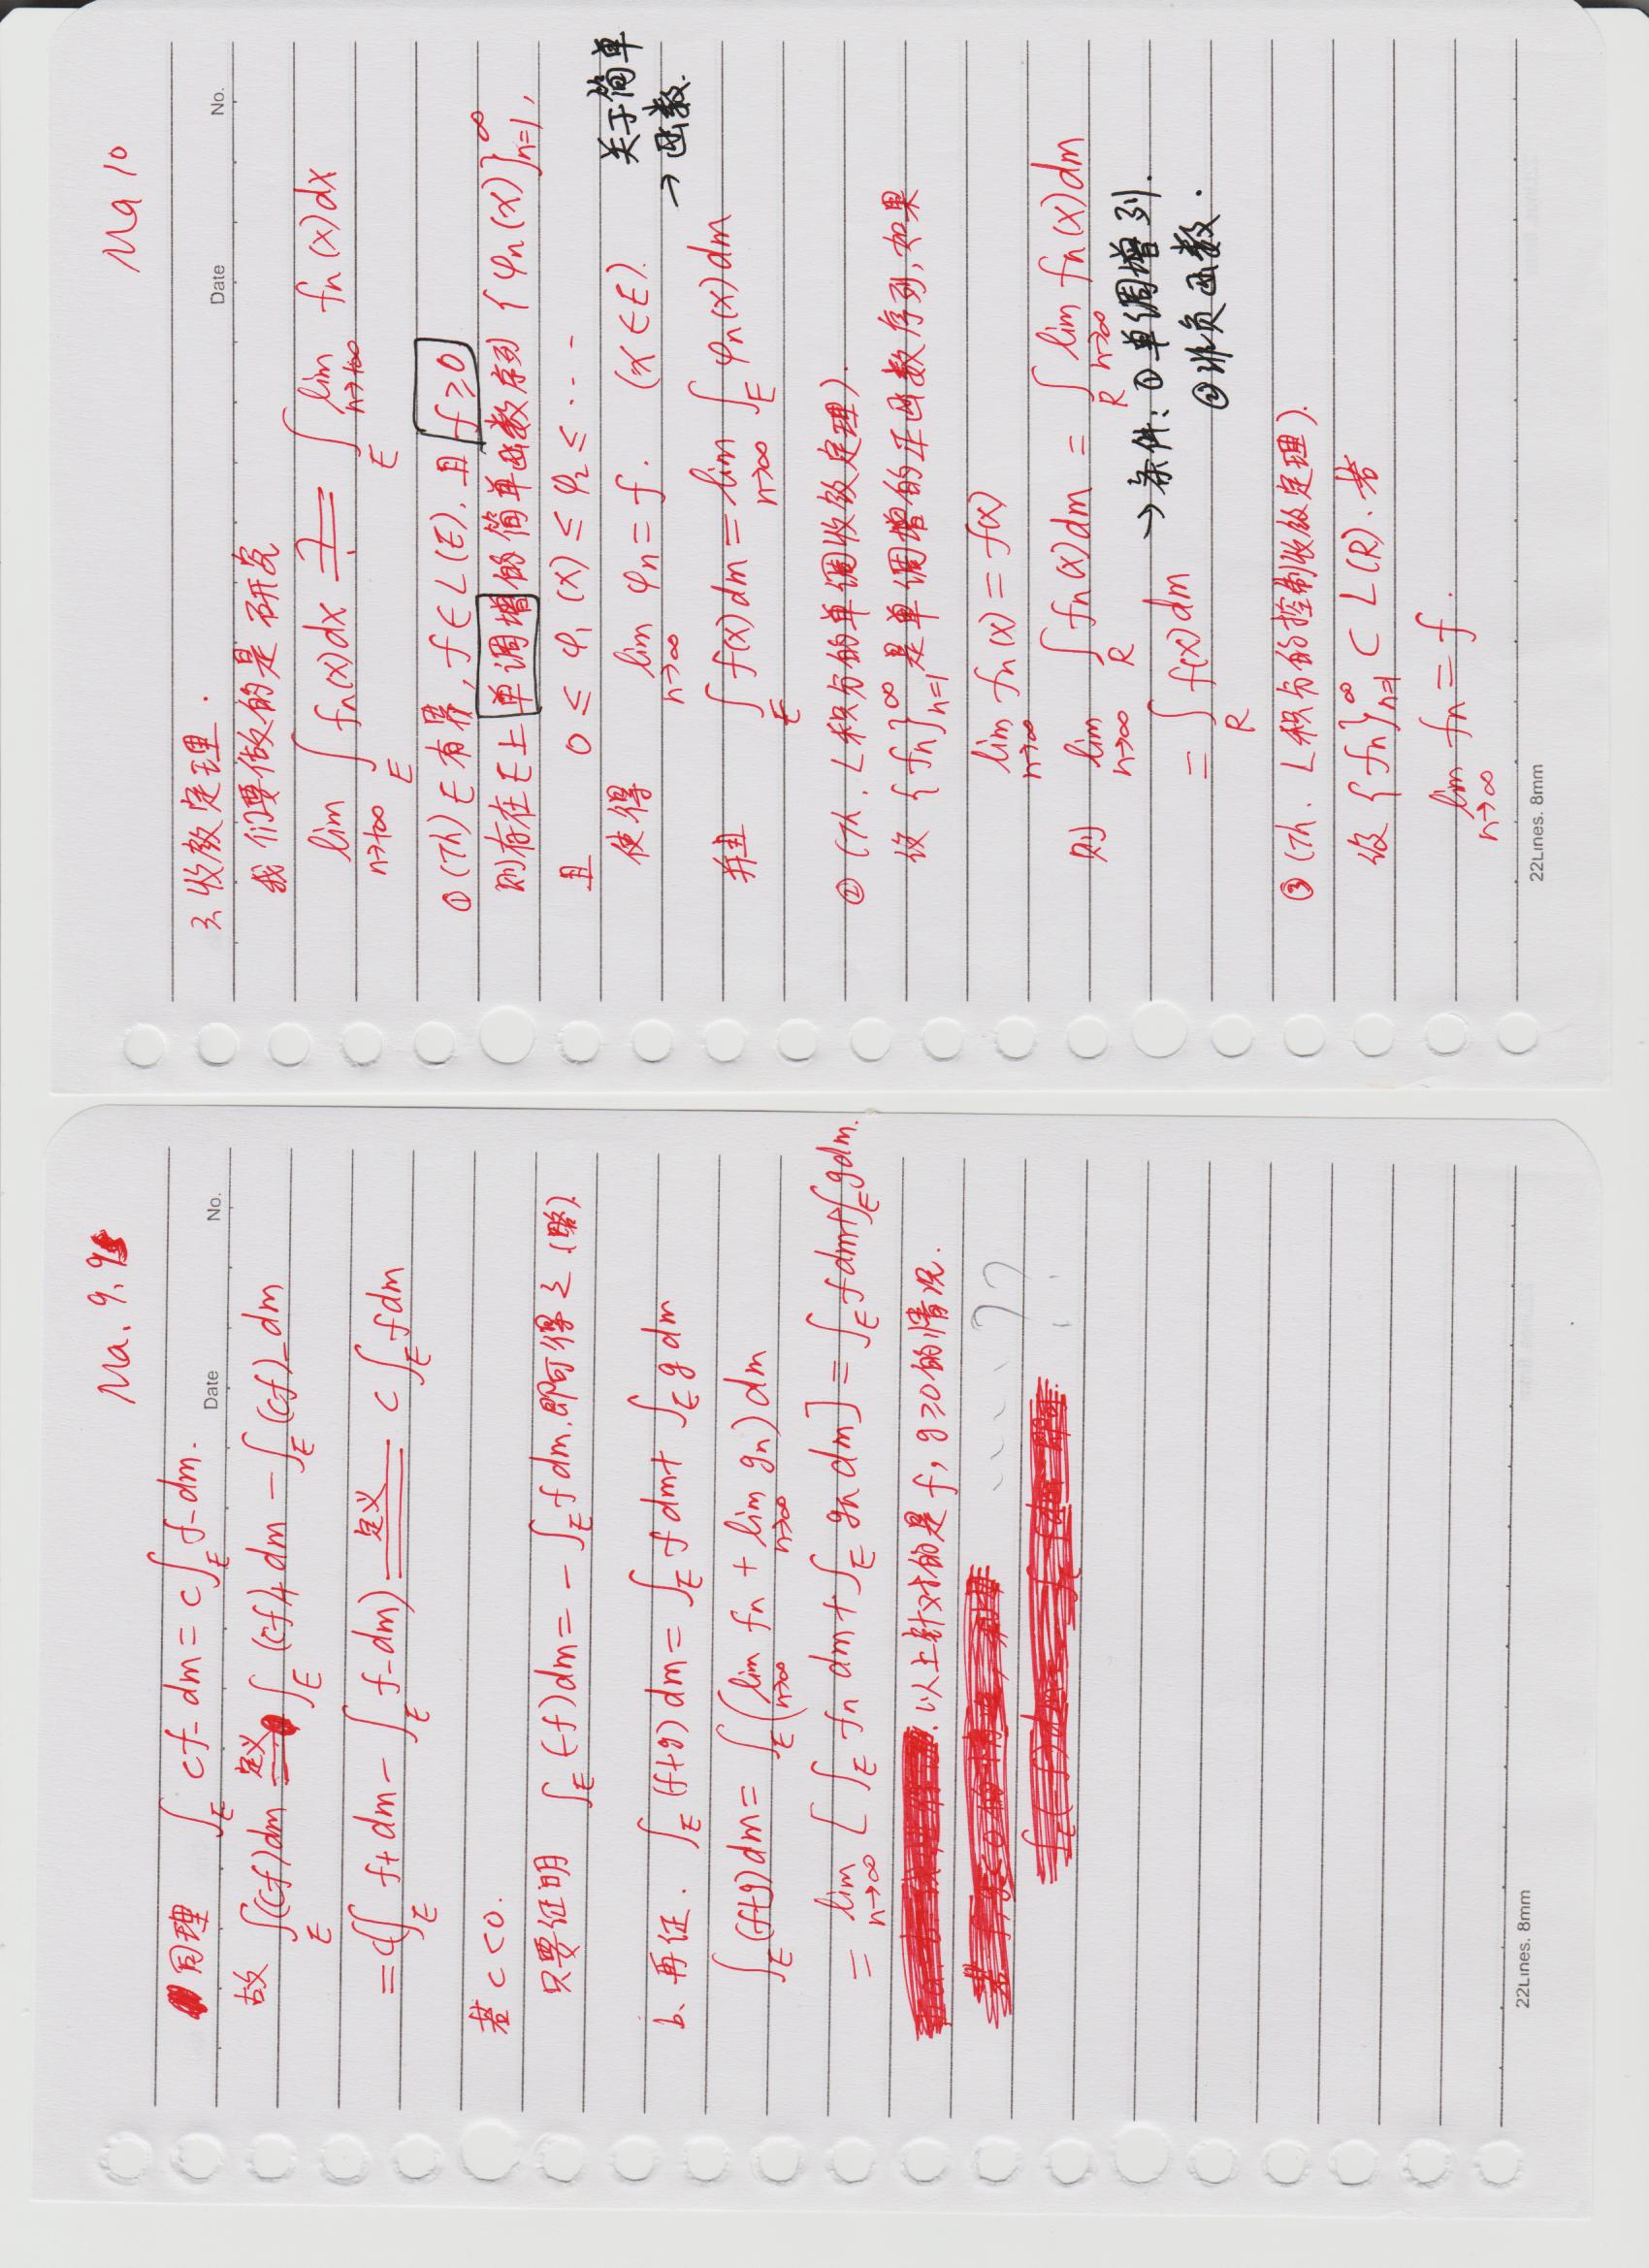 Ma. 9. 9
同理 ∫_E cf₋ dm = c∫_E f₋ dm.
Date No.
故 ∫_E (cf) dm 定义== ∫_E (cf)₊ dm − ∫_E (cf)₋ dm
= c(∫_E f₊ dm − ∫_E f₋ dm) 定义== c ∫_E f dm
若 c < 0.
只要证明 ∫_E (−f) dm = − ∫_E f dm. 即可得之 (略).
b. 再证. ∫_E (f+g) dm = ∫_E f dm + ∫_E g dm
∫_E (f+g) dm = ∫_E (lim_{n→∞} fn + lim_{n→∞} gn) dm
= lim_{n→∞} [∫_E fn dm + ∫_E gn dm] = ∫_E f dm + ∫_E g dm.
以上针对的是 f, g ≥ 0 的情况.
..... ??
22Lines. 8mm
Ma 10
3. 收敛定理.
Date No.
我们要做的是研究
lim_{n→+∞} ∫_E fn(x) dx ?== ∫_E lim_{n→+∞} fn(x) dx
① (Th) E 有界, f ∈ L(E). 且 f ≥ 0
则存在 E 上单调增的简单函数序列 {φn(x)}_{n=1}^∞,
且 0 ≤ φ₁(x) ≤ φ₂ ≤ ···
使得 lim_{n→∞} φn = f. (x ∈ E).
关于简单
→ 函数.
并且 ∫_E f(x) dm = lim_{n→∞} ∫_E φn(x) dm
② (Th. L积分的单调收敛定理).
设 {fn}_{n=1}^∞ 是单调增的正函数序列, 如果
lim_{n→∞} fn(x) = f(x)
则 lim_{n→∞} ∫_R fn(x) dm = ∫_R lim_{n→∞} fn(x) dm
= ∫_R f(x) dm → 条件: ① 单调增列.
② 非负函数.
③ (Th. L积分的控制收敛定理).
设 {fn}_{n=1}^∞ ⊂ L(R). 若
lim_{n→∞} fn = f.
22Lines. 8mm